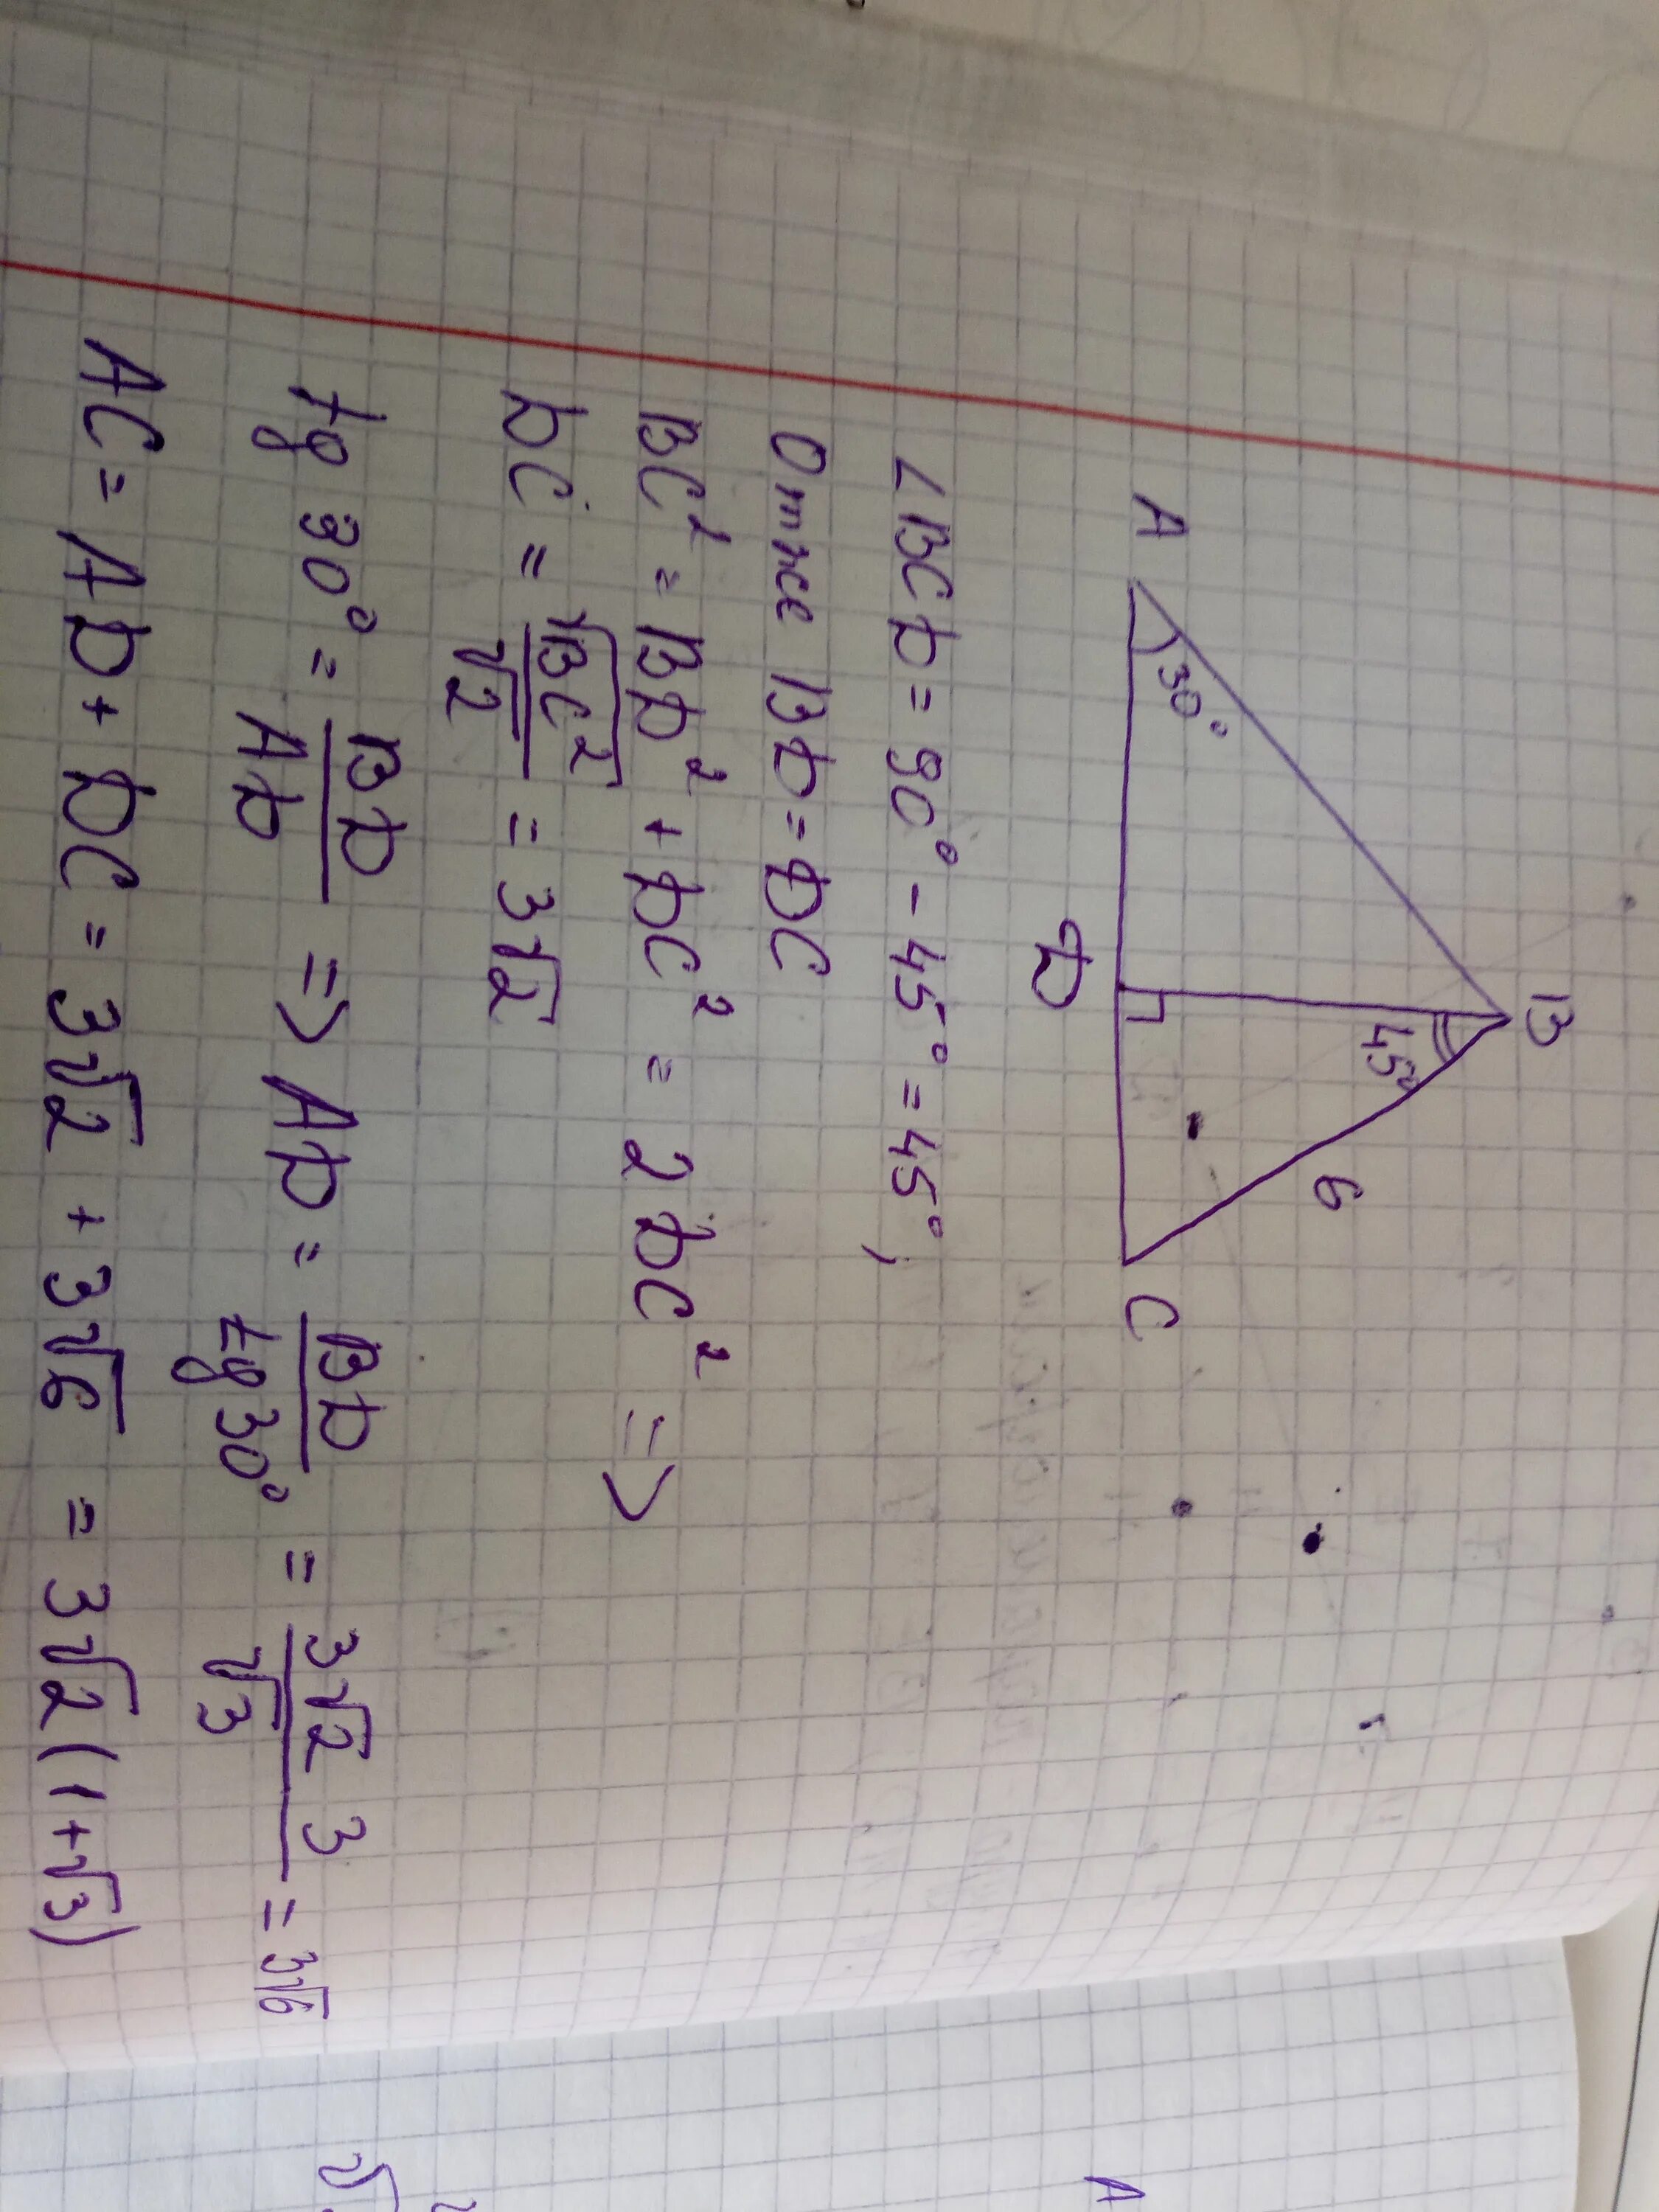 B
A 30° 45° 6 C
D
∠BCD = 90° - 45° = 45°,
Отже BD = DC
BC² = BD² + DC² = 2DC² =>
DC = √BC²/√2 = 3√2
tg 30° = BD/AD => AD = BD/tg 30° = 3√2 3/√3 = 3√6
AC = AD + DC = 3√2 + 3√6 = 3√2(1+√3)
A